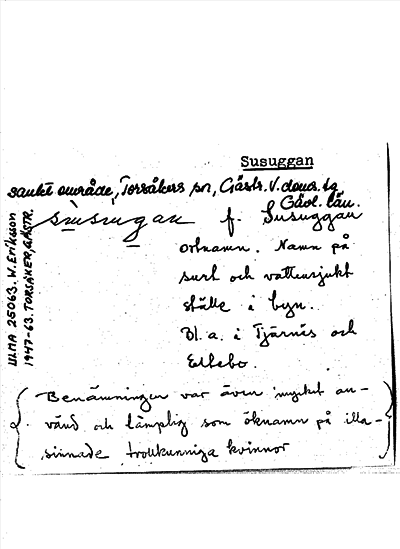 Susuggan
sankt område, Torsåkers sn, Gästr. V. doms. tg,
Gävl. län.
sùsugan f. Susuggan
ortnamn. Namn på
surt och vattensjukt
ställe i byn.
Bl. a. i Tjärnäs och
Eskebo.
(Benämningen var även mycket an-
vänd och lämplig som öknamn på illa-
sinnade trollkunniga kvinnor)
ULMA 25063. W. Eriksson
1947-63. TORSÅKER, GÄSTR.